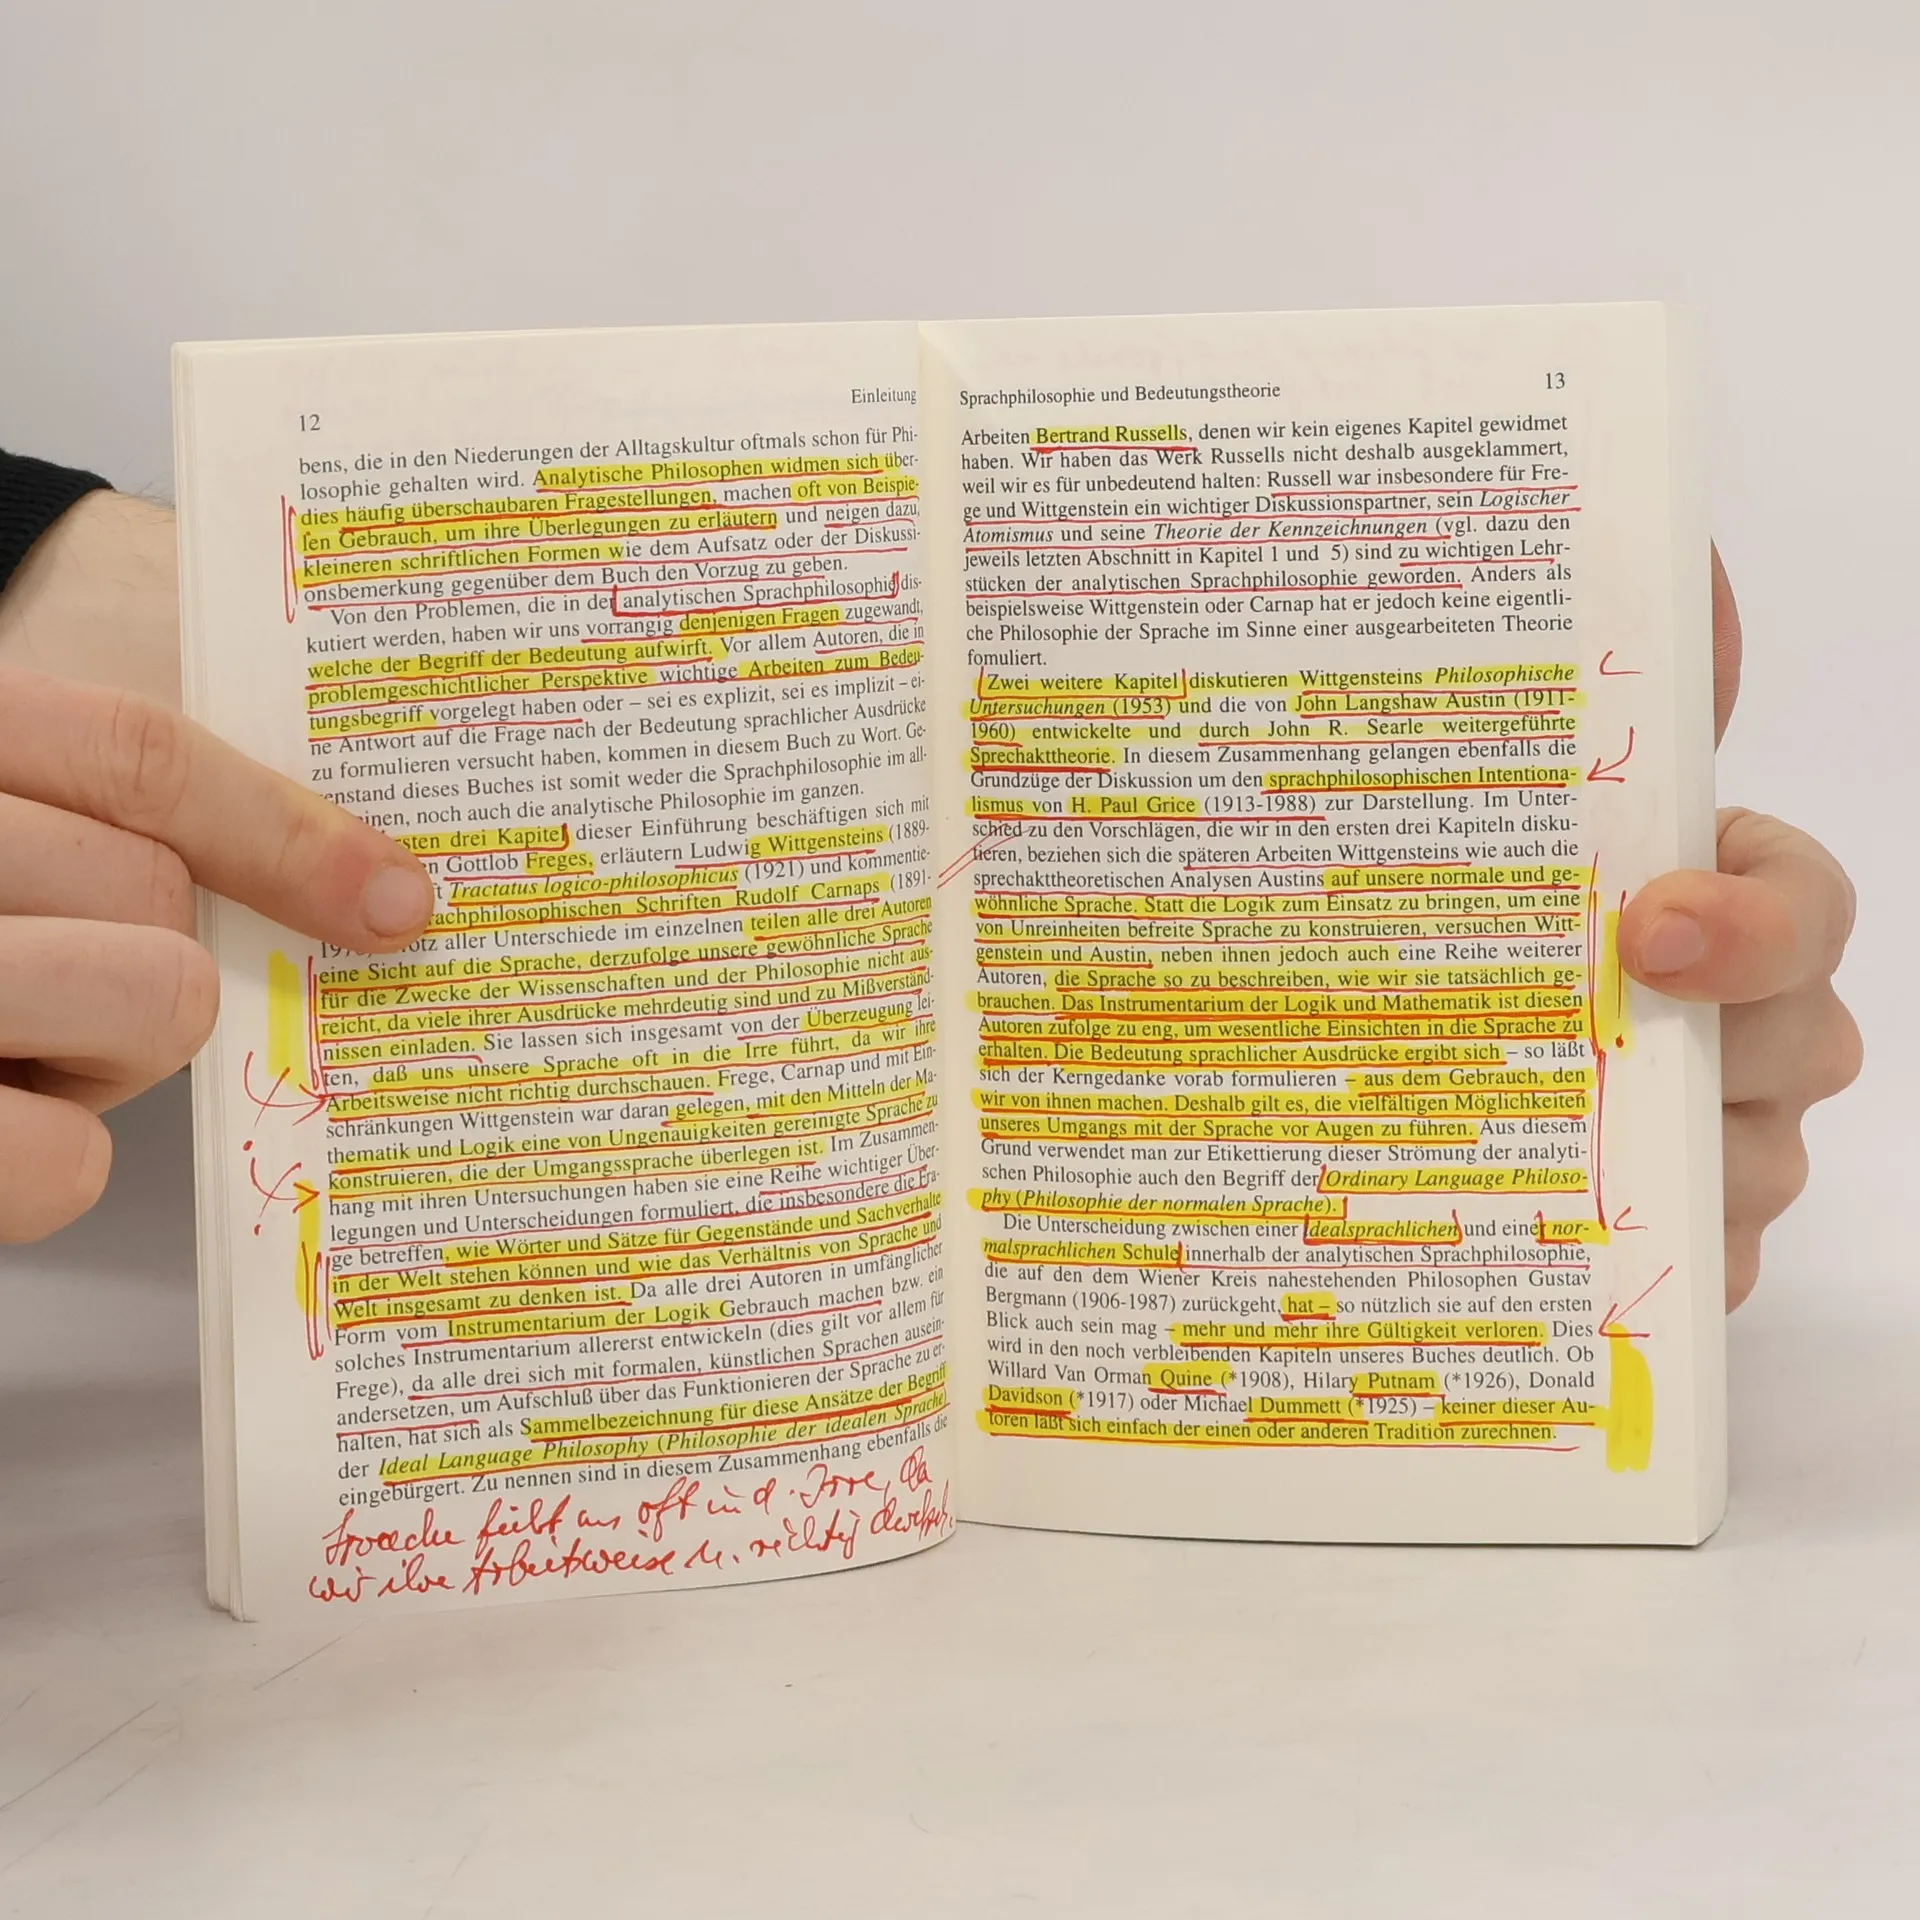 12
Einleitung
bens, die in den Niederungen der Alltagskultur oftmals schon für Phi-
losophie gehalten wird. Analytische Philosophen widmen sich über-
dies häufig überschaubaren Fragestellungen, machen oft von Beispie-
len Gebrauch, um ihre Überlegungen zu erläutern und neigen dazu,
kleineren schriftlichen Formen wie dem Aufsatz oder der Diskussi-
onsbemerkung gegenüber dem Buch den Vorzug zu geben.
Von den Problemen, die in der analytischen Sprachphilosophie dis-
kutiert werden, haben wir uns vorrangig denjenigen Fragen zugewandt,
welche der Begriff der Bedeutung aufwirft. Vor allem Autoren, die in
problemgeschichtlicher Perspektive wichtige Arbeiten zum Bedeu-
tungsbegriff vorgelegt haben oder – sei es explizit, sei es implizit – ei-
ne Antwort auf die Frage nach der Bedeutung sprachlicher Ausdrücke
zu formulieren versucht haben, kommen in diesem Buch zu Wort. Ge-
enstand dieses Buches ist somit weder die Sprachphilosophie im all-
inen, noch auch die analytische Philosophie im ganzen.
sten drei Kapitel dieser Einführung beschäftigen sich mit
n Gottlob Freges, erläutern Ludwig Wittgensteins (1889-
t Tractatus logico-philosophicus (1921) und kommentie-
achphilosophischen Schriften Rudolf Carnaps (1891-
otz aller Unterschiede im einzelnen teilen alle drei Autoren
eine Sicht auf die Sprache, derzufolge unsere gewöhnliche Sprache
für die Zwecke der Wissenschaften und der Philosophie nicht aus-
reicht, da viele ihrer Ausdrücke mehrdeutig sind und zu Mißverständ-
nissen einladen. Sie lassen sich insgesamt von der Überzeugung lei-
ten, daß uns unsere Sprache oft in die Irre führt, da wir ihre
Arbeitsweise nicht richtig durchschauen. Frege, Carnap und mit Ein-
schränkungen Wittgenstein war daran gelegen, mit den Mitteln der Ma-
thematik und Logik eine von Ungenauigkeiten gereinigte Sprache zu
konstruieren, die der Umgangssprache überlegen ist. Im Zusammen-
hang mit ihren Untersuchungen haben sie eine Reihe wichtiger Über-
legungen und Unterscheidungen formuliert, die insbesondere die Fra-
ge betreffen, wie Wörter und Sätze für Gegenstände und Sachverhalte
in der Welt stehen können und wie das Verhältnis von Sprache und
Welt insgesamt zu denken ist. Da alle drei Autoren in umfänglicher
Form vom Instrumentarium der Logik Gebrauch machen bzw. ein
solches Instrumentarium allererst entwickeln (dies gilt vor allem für
Frege), da alle drei sich mit formalen, künstlichen Sprachen ausein-
andersetzen, um Aufschluß über das Funktionieren der Sprache zu er-
halten, hat sich als Sammelbezeichnung für diese Ansätze der Begriff
der Ideal Language Philosophy (Philosophie der idealen Sprache)
eingebürgert. Zu nennen sind in diesem Zusammenhang ebenfalls die
Sprache führt uns oft in d. Irre, da
wir ihre Arbeitsweise n. richtig durchsch.
Sprachphilosophie und Bedeutungstheorie
13
Arbeiten Bertrand Russells, denen wir kein eigenes Kapitel gewidmet
haben. Wir haben das Werk Russells nicht deshalb ausgeklammert,
weil wir es für unbedeutend halten: Russell war insbesondere für Fre-
ge und Wittgenstein ein wichtiger Diskussionspartner, sein Logischer
Atomismus und seine Theorie der Kennzeichnungen (vgl. dazu den
jeweils letzten Abschnitt in Kapitel 1 und 5) sind zu wichtigen Lehr-
stücken der analytischen Sprachphilosophie geworden. Anders als
beispielsweise Wittgenstein oder Carnap hat er jedoch keine eigentli-
che Philosophie der Sprache im Sinne einer ausgearbeiteten Theorie
fomuliert.
Zwei weitere Kapitel diskutieren Wittgensteins Philosophische
Untersuchungen (1953) und die von John Langshaw Austin (1911-
1960) entwickelte und durch John R. Searle weitergeführte
Sprechakttheorie. In diesem Zusammenhang gelangen ebenfalls die
Grundzüge der Diskussion um den sprachphilosophischen Intentiona-
lismus von H. Paul Grice (1913-1988) zur Darstellung. Im Unter-
schied zu den Vorschlägen, die wir in den ersten drei Kapiteln disku-
tieren, beziehen sich die späteren Arbeiten Wittgensteins wie auch die
sprechakttheoretischen Analysen Austins auf unsere normale und ge-
wöhnliche Sprache. Statt die Logik zum Einsatz zu bringen, um eine
von Unreinheiten befreite Sprache zu konstruieren, versuchen Witt-
genstein und Austin, neben ihnen jedoch auch eine Reihe weiterer
Autoren, die Sprache so zu beschreiben, wie wir sie tatsächlich ge-
brauchen. Das Instrumentarium der Logik und Mathematik ist diesen
Autoren zufolge zu eng, um wesentliche Einsichten in die Sprache zu
erhalten. Die Bedeutung sprachlicher Ausdrücke ergibt sich – so läßt
sich der Kerngedanke vorab formulieren – aus dem Gebrauch, den
wir von ihnen machen. Deshalb gilt es, die vielfältigen Möglichkeiten
unseres Umgangs mit der Sprache vor Augen zu führen. Aus diesem
Grund verwendet man zur Etikettierung dieser Strömung der analyti-
schen Philosophie auch den Begriff der Ordinary Language Philoso-
phy (Philosophie der normalen Sprache).
Die Unterscheidung zwischen einer idealsprachlichen und einer nor-
malsprachlichen Schule innerhalb der analytischen Sprachphilosophie,
die auf den dem Wiener Kreis nahestehenden Philosophen Gustav
Bergmann (1906-1987) zurückgeht, hat – so nützlich sie auf den ersten
Blick auch sein mag – mehr und mehr ihre Gültigkeit verloren. Dies
wird in den noch verbleibenden Kapiteln unseres Buches deutlich. Ob
Willard Van Orman Quine (*1908), Hilary Putnam (*1926), Donald
Davidson (*1917) oder Michael Dummett (*1925) – keiner dieser Au-
toren läßt sich einfach der einen oder anderen Tradition zurechnen.